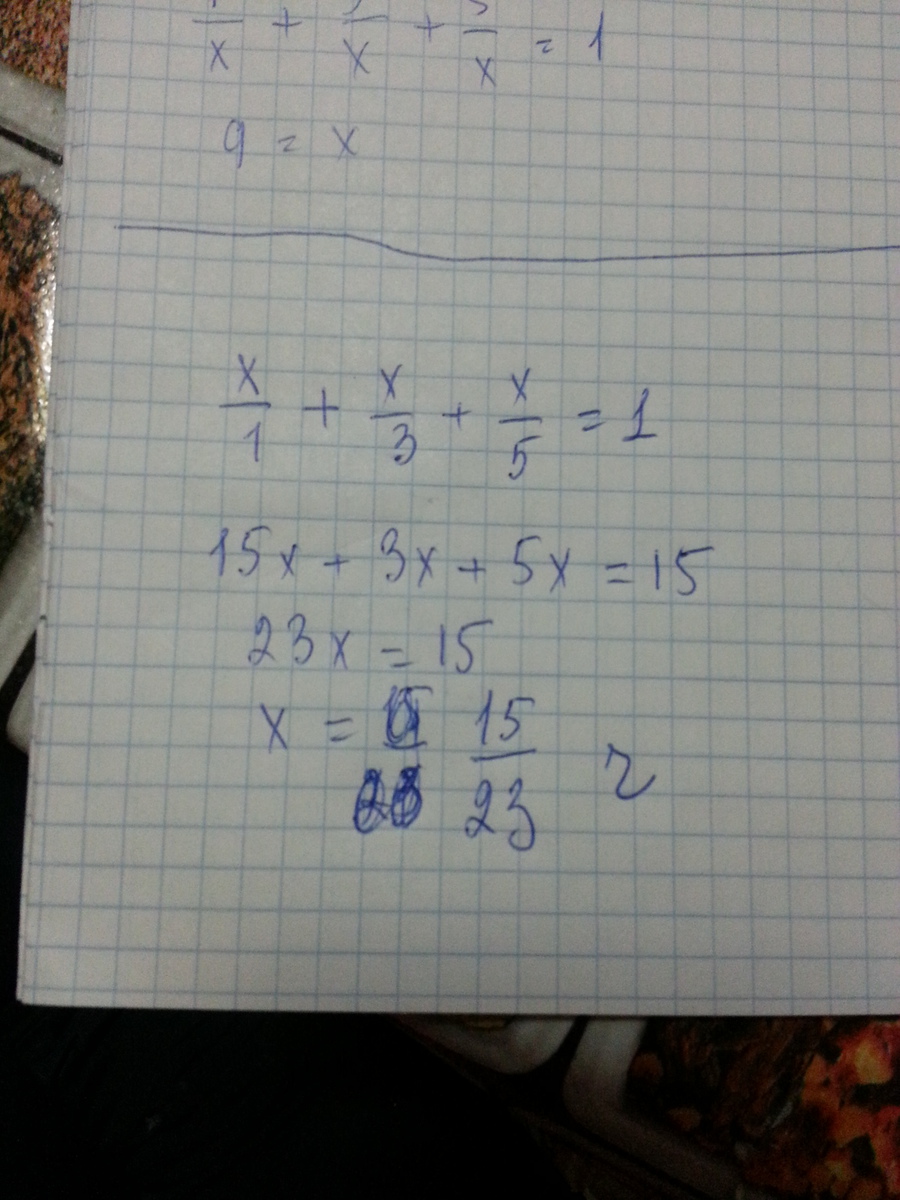 /x + /x + /x = 1
9 = x
x/1 + x/3 + x/5 = 1
15x + 3x + 5x = 15
23x = 15
x = 15/23 г